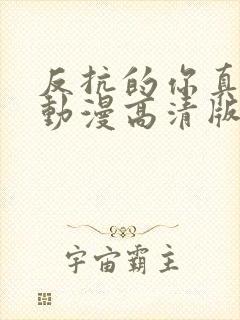 反抗的你真
動漫高清版
宇宙霸主